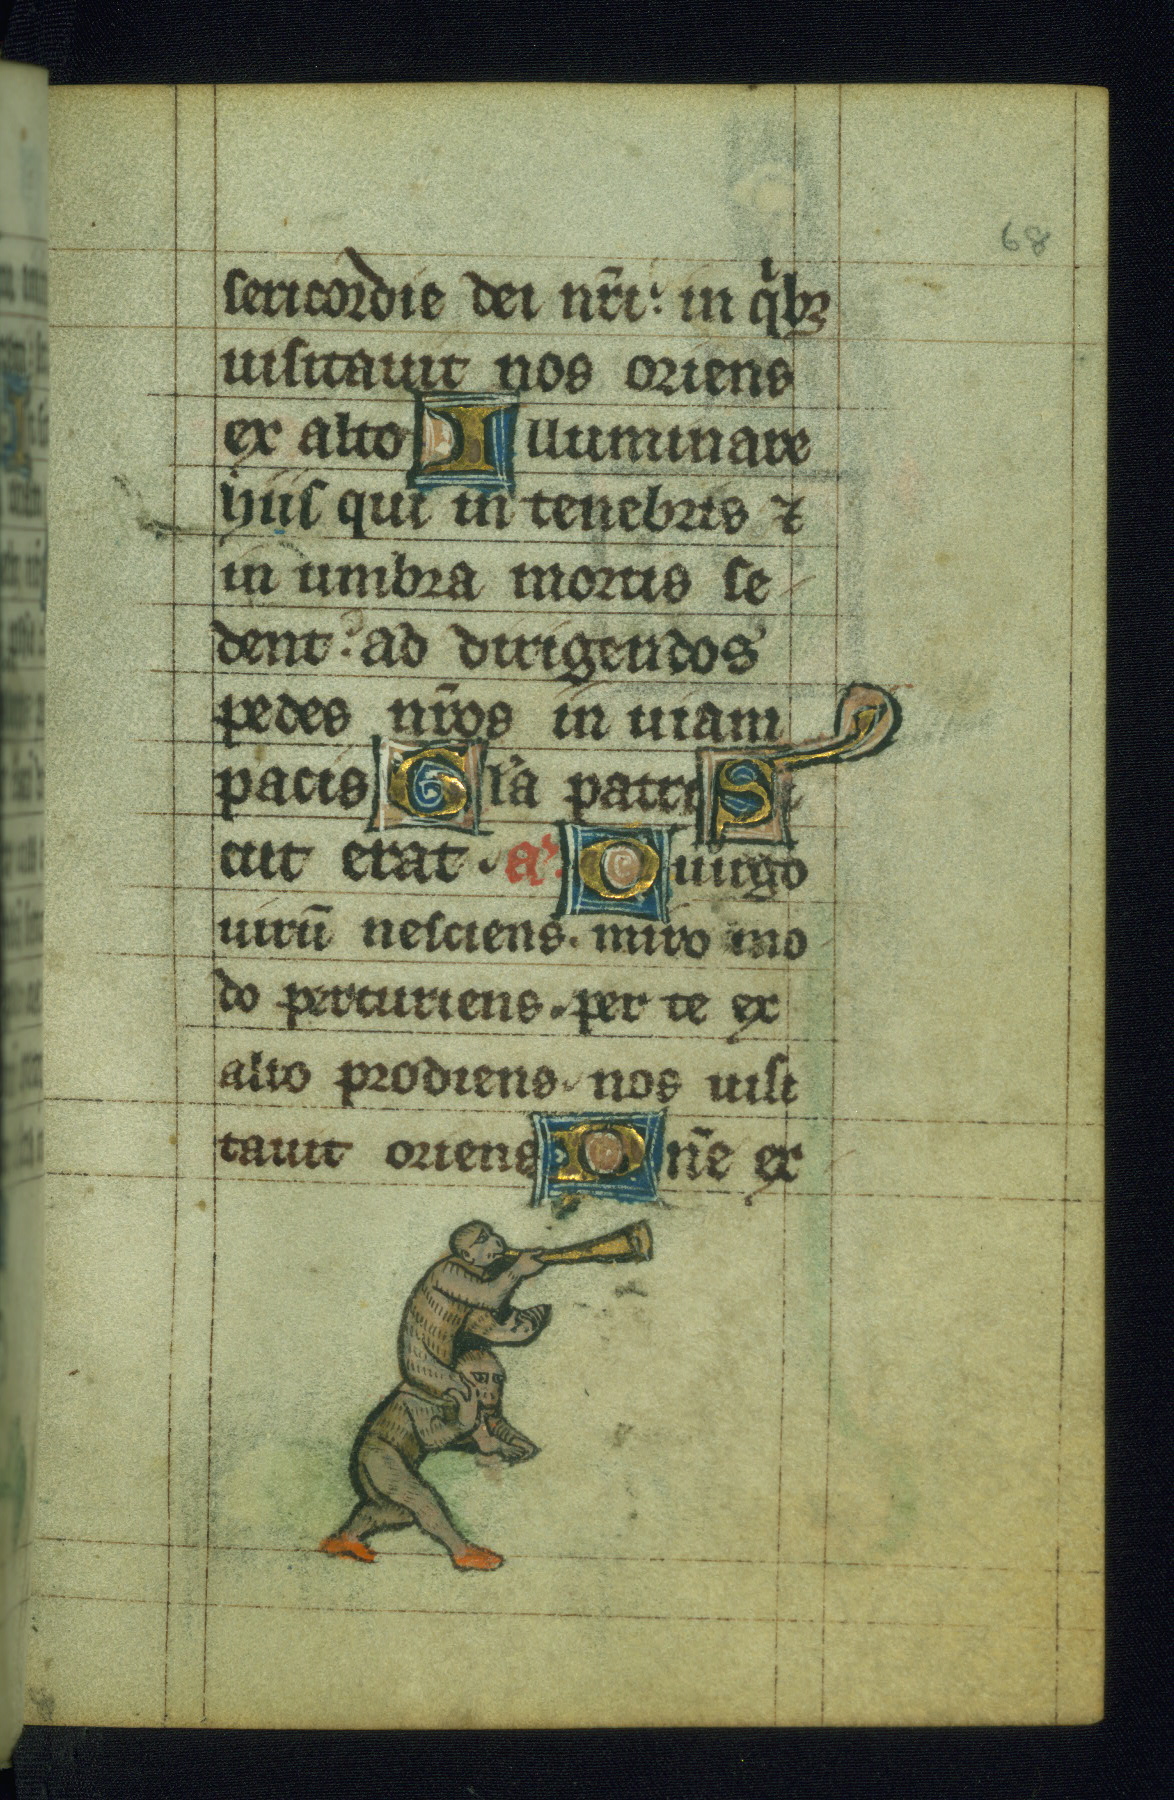 68
sericordie dei nr̃i: in qͥbꝫ
uisitauit nos oriens
ex alto Illuminare
hiis qui in tenebris ⁊
in umbra mortis se
dent: ad dirigendos
pedes nr̃os in uiam
pacis Gl̃a patri Si
cut erat. a᷒. O uirgo
uirũ nesciens. miro mo
do perturiens. per te ex
alto prodiens. nos uisi
tauit oriens Dñe ex